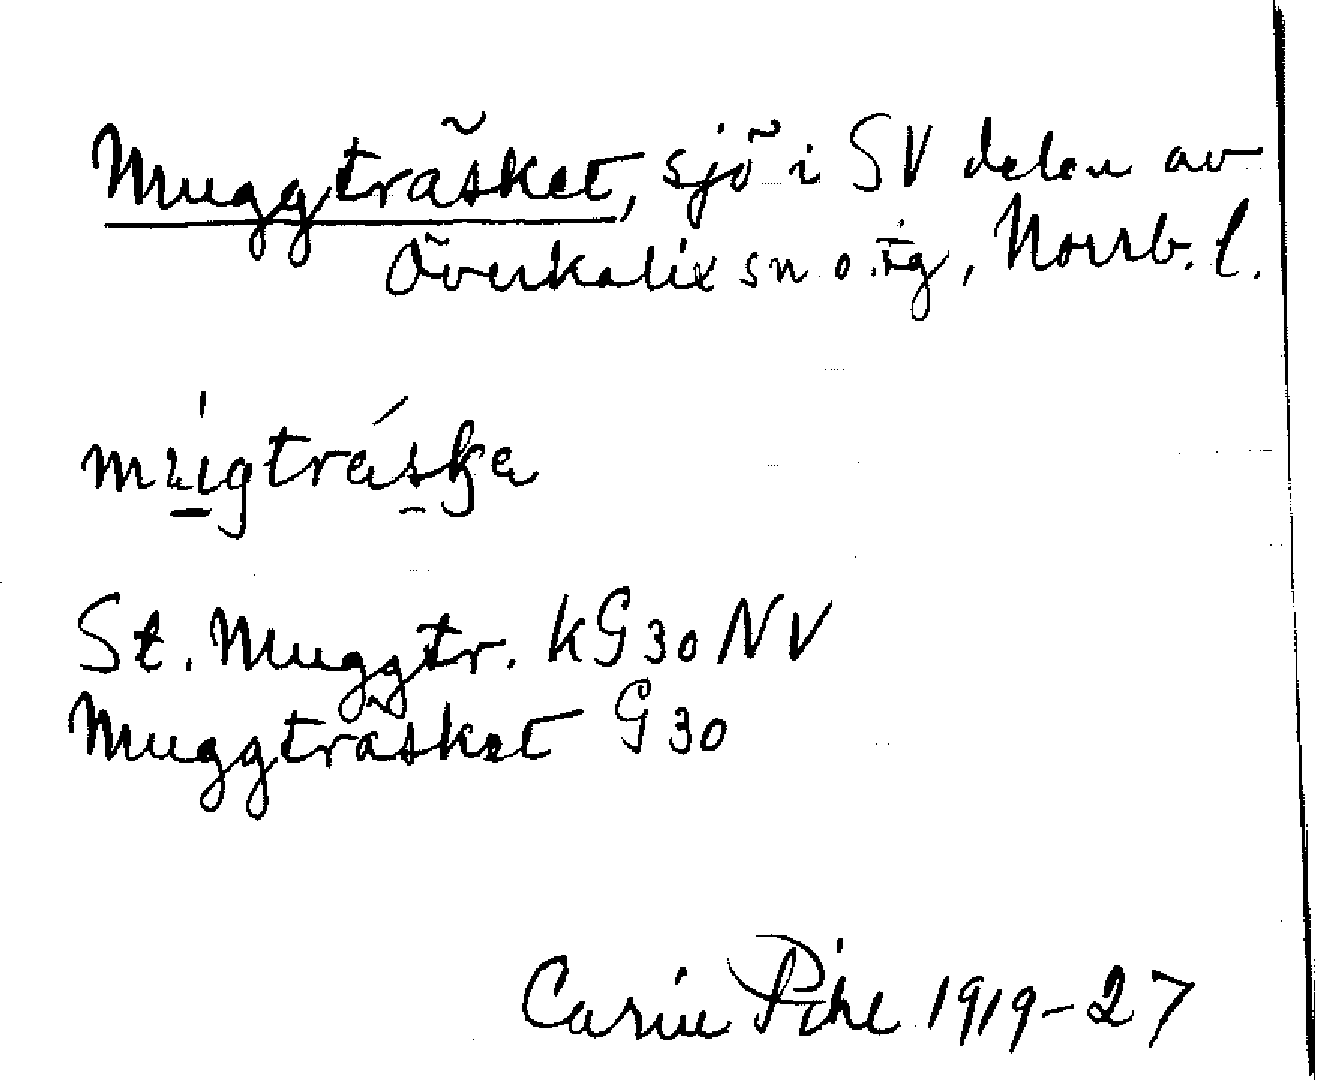 Muggträsket, sjö i SV delen av
Överkalix sn o. tg, Norrb. l.
St. Muggtr. KG30NV
Muggträsket G30
Carin Pihl 1919-27